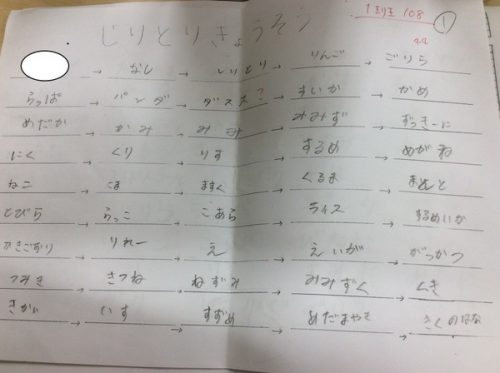 しりとりきょうそう 1まい王 108 ①
→ なし → しりとり → りんご → ごりら
らっぱ → パンダ → ダスス? → すいか → かめ
めだか → かみ → みみ → みみず → ずっきーに
にく → くり → りす → するめ → めがね
ねこ → こま → ますく → くるま → まと
とびら → らっこ → こあら → ライス → するめいか
かきごおり → りれー → え → えいが → がっかつ
つみき → きつね → ねずみ → みみずく → くき
きかい → いす → すずめ → めだまやき → きくのはな